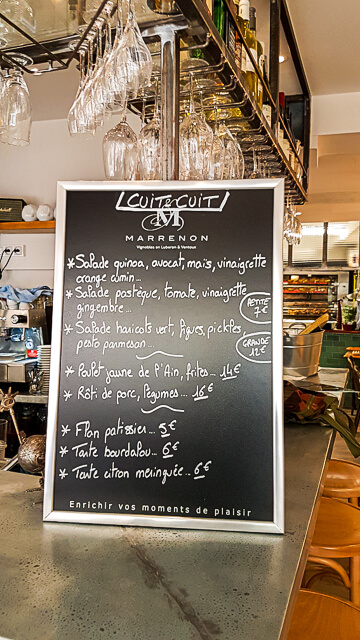 CUIT & CUIT
M
MARRENON
Vignobles en Luberon & Ventoux
* Salade quinoa, avocat, maïs, vinaigrette
orange cumin...
* Salade pastèque, tomate, vinaigrette
gingembre...
PETITE
7€
* Salade haricots vert, figues, pickles,
pesto parmesan...
GRANDE
12€
* Poulet jaune de l'Ain, frites... 14€
* Rôti de porc, légumes... 16€
* Flan patissier... 5€
* Tarte bourdalou... 6€
* Tarte citron meringuée... 6€
Enrichir vos moments de plaisir